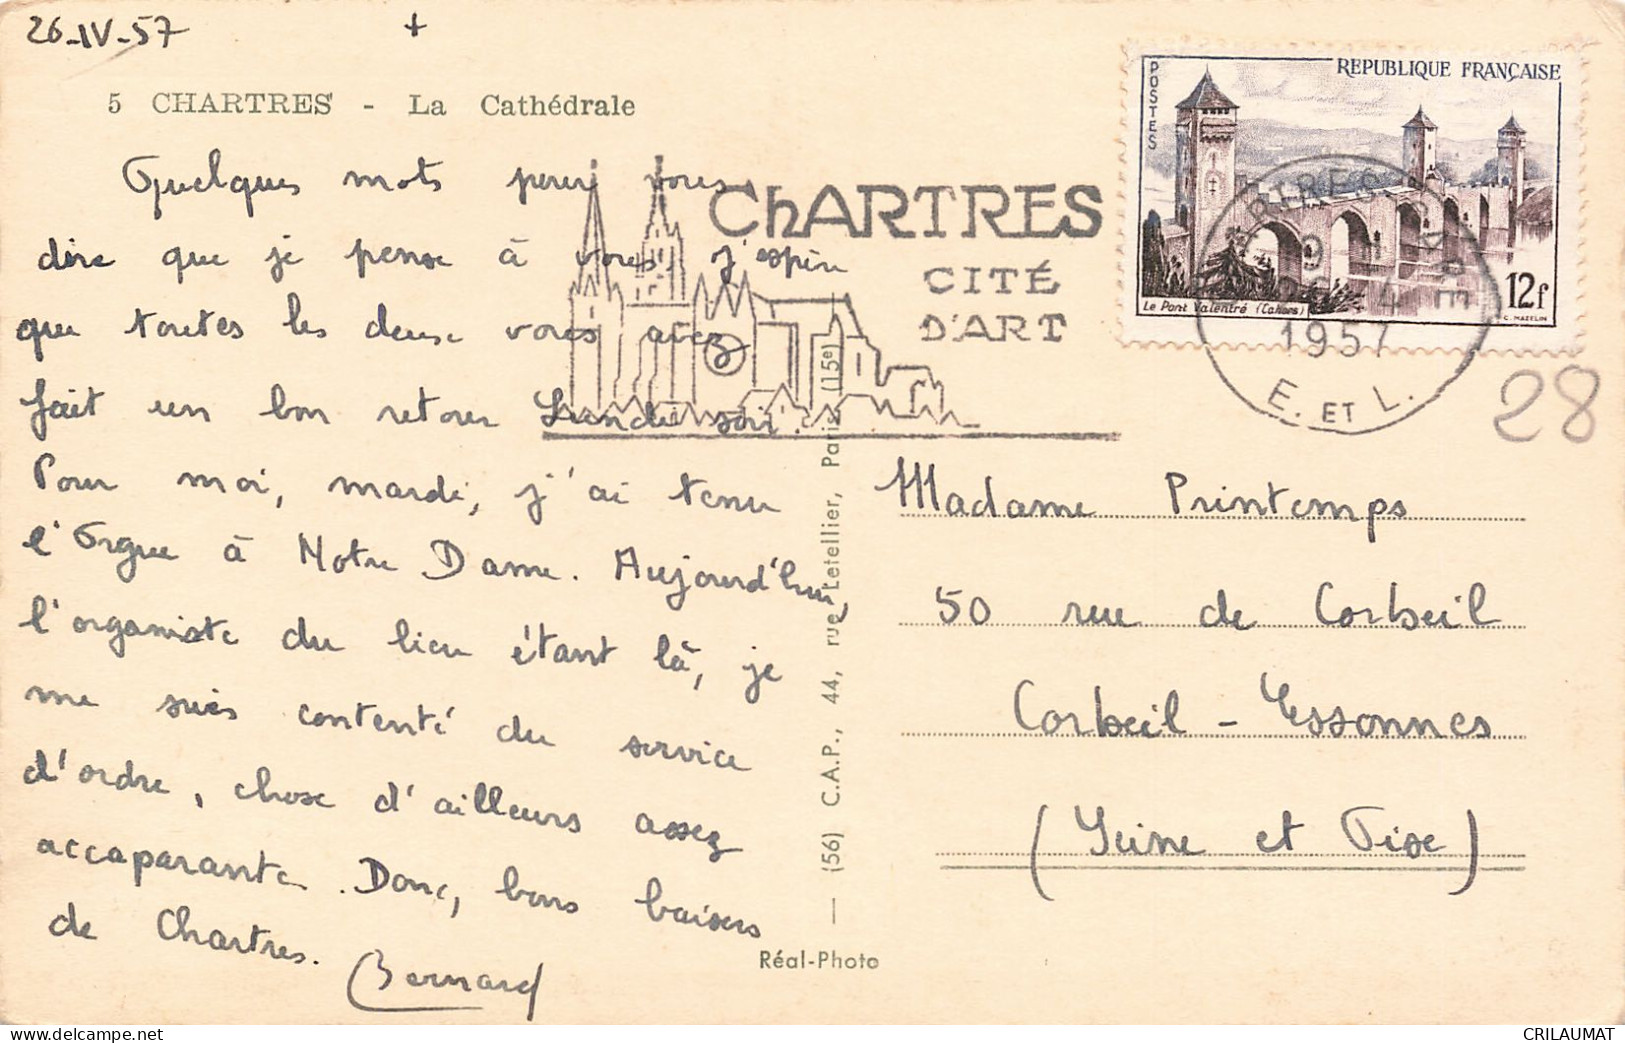 26-IV-57
+
5 CHARTRES - La Cathédrale
Quelques mots pour vous
dire que je pense à vous, j'espère
que toutes les deux vous avez
fait un bon retour Lundi soir.
Pour moi, mardi, j'ai tenu
l'Orgue à Notre Dame. Aujourd'hui,
l'organiste du lieu étant là, je
me suis contenté du service
d'ordre, chose d'ailleurs assez
accaparante. Donc, bons baisers
de Chartres. Bernard
ChARTRES
CITÉ
D'ART
POSTES
REPUBLIQUE FRANÇAISE
Le Pont Valentré (Cahors)
12f
C. MAZELIN
1957
E. ET L.
28
Madame Printemps
50 rue de Corbeil
Corbeil-Essonnes
(Seine et Oise)
(56) C.A.P., 44, rue Letellier, Paris (15e)
Réal-Photo
www.delcampe.net
CRILAUMAT